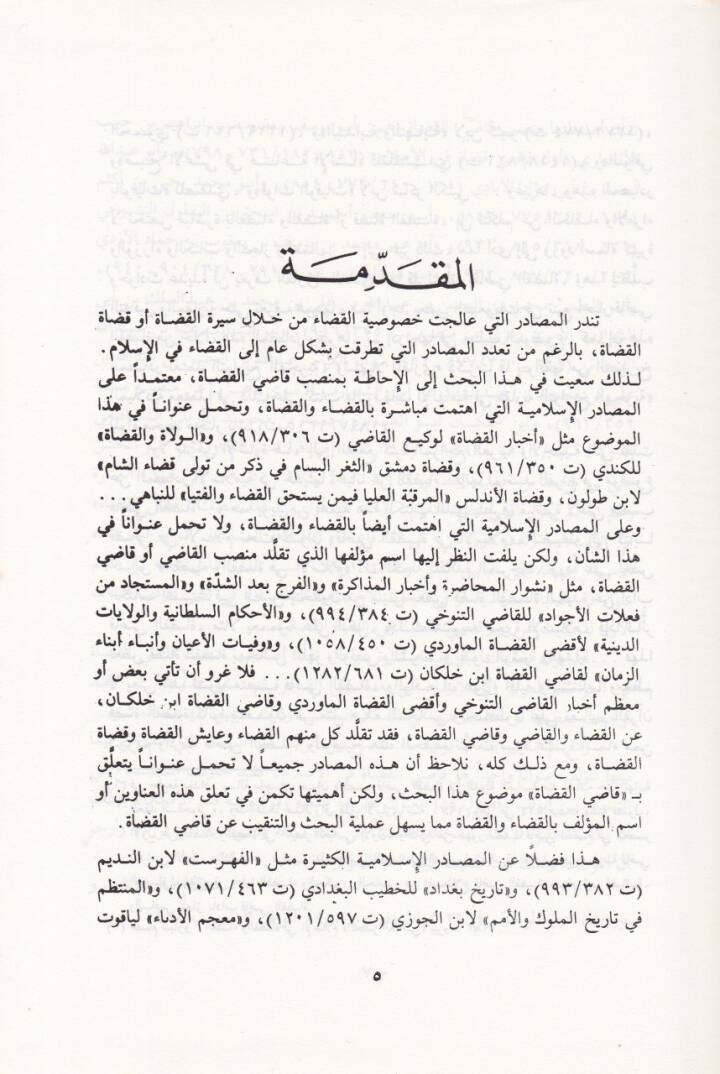 المقدّمة
تندر المصادر التي عالجت خصوصية القضاء من خلال سيرة القضاة أو قضاة
القضاة، بالرغم من تعدد المصادر التي تطرقت بشكل عام إلى القضاء في الإسلام.
لذلك سعيت في هذا البحث إلى الإحاطة بمنصب قاضي القضاة، معتمداً على
المصادر الإسلامية التي اهتمت مباشرة بالقضاء والقضاة، وتحمل عنواناً في هذا
الموضوع مثل «أخبار القضاة» لوكيع القاضي (ت ٩١٨/٣٠٦)، و«الولاة والقضاة»
للكندي (ت ٩٦١/٣٥٠)، وقضاة دمشق «الثغر البسام في ذكر من تولى قضاء الشام»
لابن طولون، وقضاة الأندلس «المرقبّة العليا فيمن يستحق القضاء والفتيا» للنباهي...
وعلى المصادر الإسلامية التي اهتمت أيضاً بالقضاء والقضاة، ولا تحمل عنواناً في
هذا الشأن، ولكن يلفت النظر إليها اسم مؤلفها الذي تقلّد منصب القاضي أو قاضي
القضاة، مثل «نشوار المحاضرة وأخبار المذاكرة» و«الفرج بعد الشدّة» و«المستجاد من
فعلات الأجواد» للقاضي التنوخي (ت ٩٩٤/٣٨٤)، و«الأحكام السلطانية والولايات
الدينية» لأقضى القضاة الماوردي (ت ١٠٥٨/٤٥٠)، و«وفيات الأعيان وأنباء أبناء
الزمان» لقاضي القضاة ابن خلكان (ت ١٢٨٢/٦٨١)... فلا غرو أن تأتي بعض أو
معظم أخبار القاضي التنوخي وأقضى القضاة الماوردي وقاضي القضاة ابن خلكان،
عن القضاء والقاضي وقاضي القضاة، فقد تقلّد كل منهم القضاء وعايش القضاة وقضاة
القضاة، ومع ذلك كله، نلاحظ أن هذه المصادر جميعاً لا تحمل عنواناً يتعلّق
بـ «قاضي القضاة» موضوع هذا البحث، ولكن أهميتها تكمن في تعلق هذه العناوين أو
اسم المؤلف بالقضاء والقضاة مما يسهل عملية البحث والتنقيب عن قاضي القضاة.
هذا فضلاً عن المصادر الإسلامية الكثيرة مثل «الفهرست» لابن النديم
(ت ٩٩٣/٣٨٢)، و«تاريخ بغداد» للخطيب البغدادي (ت ١٠٧١/٤٦٣)، و«المنتظم
في تاريخ الملوك والأمم» لابن الجوزي (ت ١٢٠١/٥٩٧)، و«معجم الأدباء» لياقوت
٥